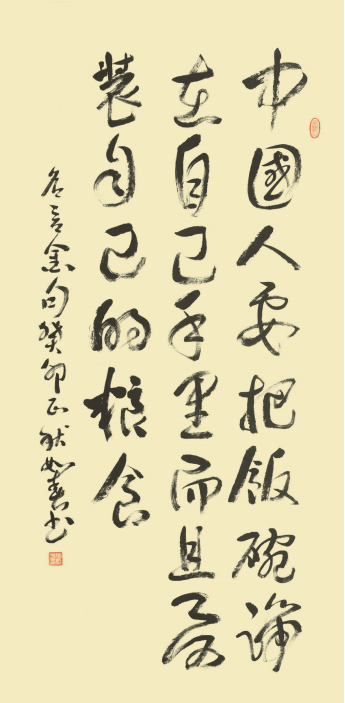 中國人要把飯碗端
在自己手里而且要
装自己的粮食
名言金句癸卯秋如春书